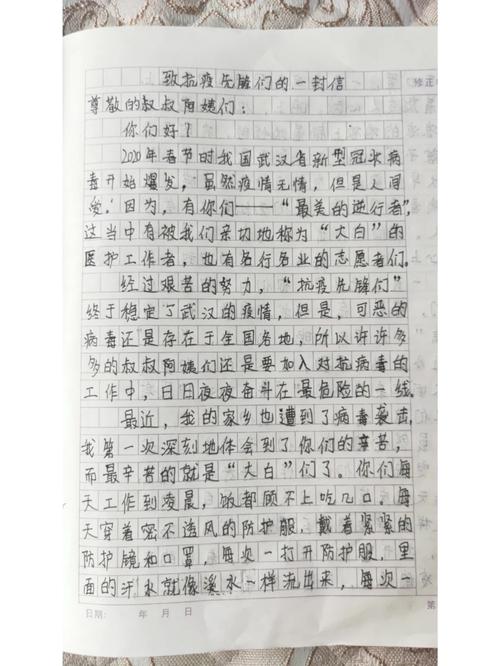 致抗疫先锋们的一封信
尊敬的叔叔阿姨们：
你们好！
2020年春节时我国武汉省新型冠状病
毒开始爆发，虽然疫情无情，但是人间
爱。因为，有你们——“最美的逆行者”，
这当中有被我们亲切地称为“大白”的
医护工作者，也有各行各业的志愿者们。
经过艰苦的努力，“抗疫先锋们”
终于稳定了武汉的疫情，但是，可恶的
病毒还是存在于全国各地，所以许许多
多的叔叔阿姨们还是要加入对抗病毒的
工作中，日日夜夜奋斗在最危险的一线。
最近，我的家乡也遭到了病毒袭击，
我第一次深刻地体会到了你们的辛苦，
而最辛苦的就是“大白”们了。你们每
天工作到凌晨，饭都顾不上吃几口。每
天穿着密不透风的防护服，戴着紧紧的
防护镜和口罩，每次一打开防护服，里
面的汗水就像溪水一样流出来，每次一
日期： 年 月 日
第
修正